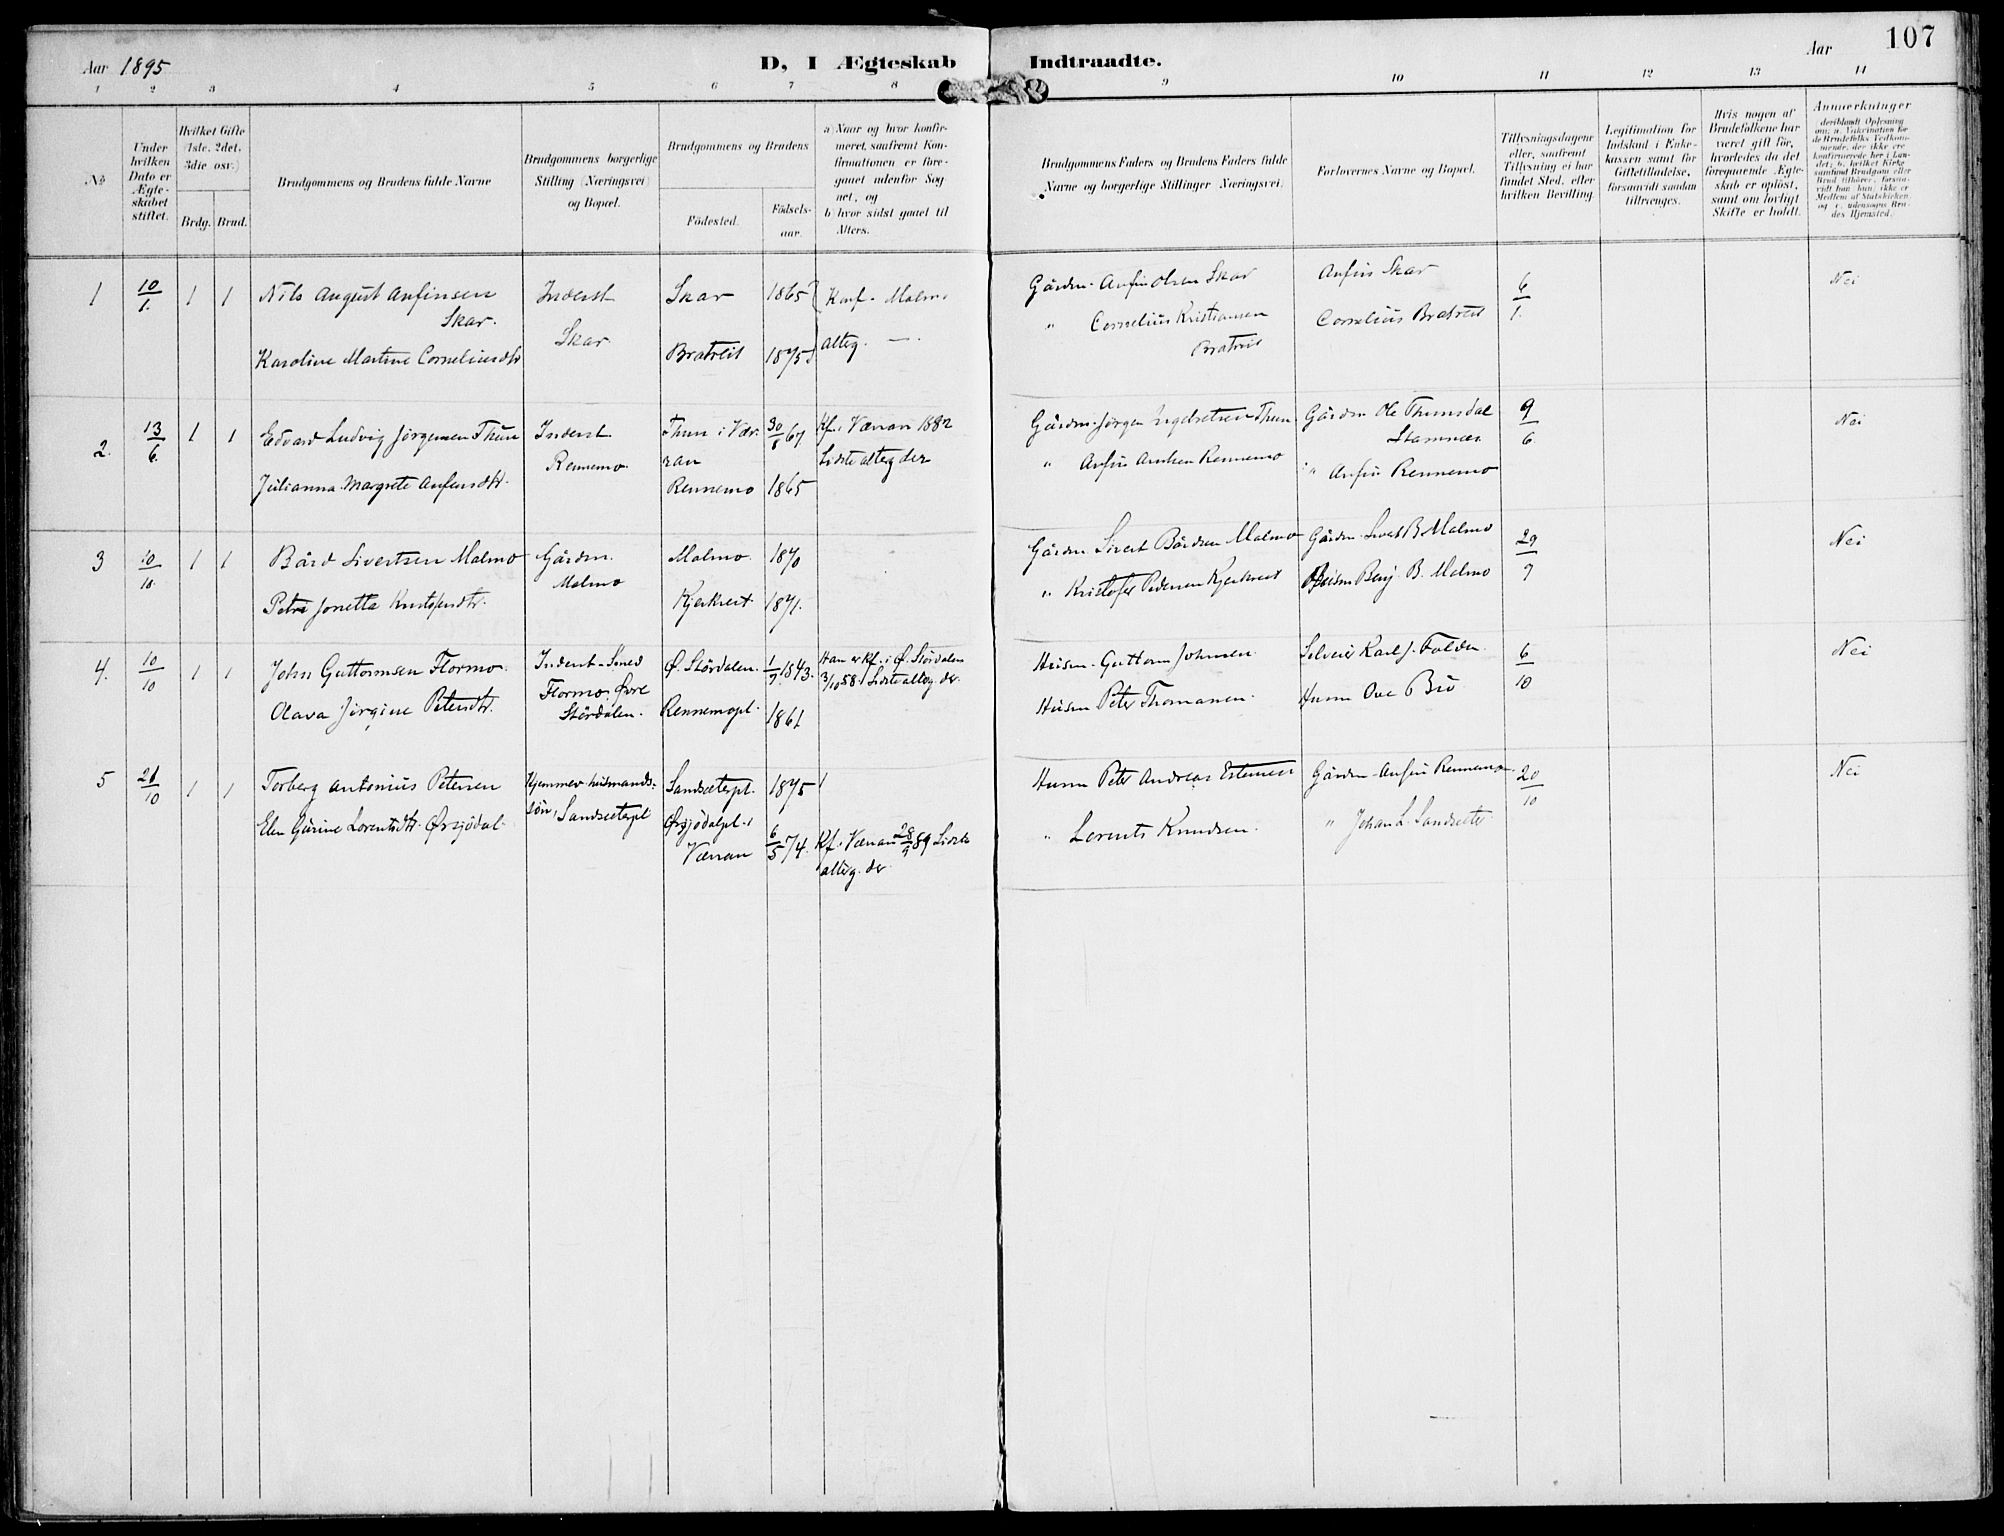 Aar 1895
D, I Ægteskab Indtraadte.
Aar
107
1 2 3 4 5 6 7 8 9 10 11 12 13 14
No
Under hvilken Dato er Ægteskabet stiftet.
Hvilket Gifte (1ste, 2det, 3die osv.)
Brdg. Brud.
Brudgommens og Brudens fulde Navne
Brudgommens borgerlige Stilling (Næringsvei) og Bopæl.
Brudgommens og Brudens
Födested. Födselsaar.
a) Naar og hvor konfirmeret, saafremt Konfirmationen er foregaaet udenfor Sognet, og
b) hvor sidst gaaet til Alters.
Brudgommens Faders og Brudens Faders fulde Navne og borgerlige Stillinger (Næringsvei)
Forlovernes Navne og Bopæl.
Tillysningsdagene eller, saafremt Tillysning ei har fundet Sted, efter hvilken Bevilling.
Legitimation for Indskud i Enkekassen samt for Giftetilladelse, forsaavidt saadan tiltrænges.
Hvis nogen af Brudefolkene har været gift før, hvorledes da det foregaaende Ægteskab er opløst, samt om lovligt Skifte er holdt.
Anmerkninger
1 10/1. 1 1 Nils August Anfinsen Skar.
Inderst Skar.
Skar 1865
Konf. Malmo
Gårdm. Anfin Olsen Skar
Anfin Skar
6/1.
Nei
Karoline Martine Corneliusdtr
Bratreit 1875
alterg. —
" Cornelius Kristiansen Bratreit
Cornelius Bratreit
2. 13/6. 1 1 Edvard Ludvig Jörgensen Thun
Inderst Rennemo.
Thun i Værran 30/8 67
Kf. i Værran 1882 Sidste alterg der
Gårdm. Jörgen Thun
Gårdm Ole Thunsdal Stamnes
9/6
Nei
Julianna Margrete Anfinsdtr.
Rennemo 1865
" Anfin Rennemo
" Anfin Rennemo
3 10/10. 1 1 Bård Sivertsen Malmo
Gårdm. Malmo
Malmo. 1870
Gårdm Sivert Bårdsen Malmo
Gårdm. Sivert B. Malmo
29/9
Nei
Petra Jonetta Kristofersdtr.
Kjerkreit. 1871.
" Kristofer Pedersen Kjerkreit
Husm Benj. B. Malmo
4. 10/10 1 1 John Guttormsen Flormo.
Inderst-Smed Flormo, Øvre Stördalen.
Ø. Stördalen. 1/7 1843.
Han er Kf. i Ø. Stördalen 3/10 58. Sidste alterg. der.
Husm. Guttorm Johnsen
Selveier Karl J. Folden
6/10
Nei
Olava Jörgine Petersdtr.
Rennemopl. 1861
Husm Peter Thomassen.
Husm Ove Brö
5 21/10 1 1 Torberg Antonius Petersen
Hjemmev. husmandssön, Sandsæterpl
Sandsæterpl. 1875
Husm Peter Andreas Estensen
Gårdm. Anfin Rennemo
20/10
Nei
Elen Gurine Lorentsdtr. Örsjödal.
Örsjödalpl. i Værran 6/5 74.
Kf. i Værran 28/9 89 Sidste alterg. der
" Lorents Knudsen.
" Johan L. Sandsæter